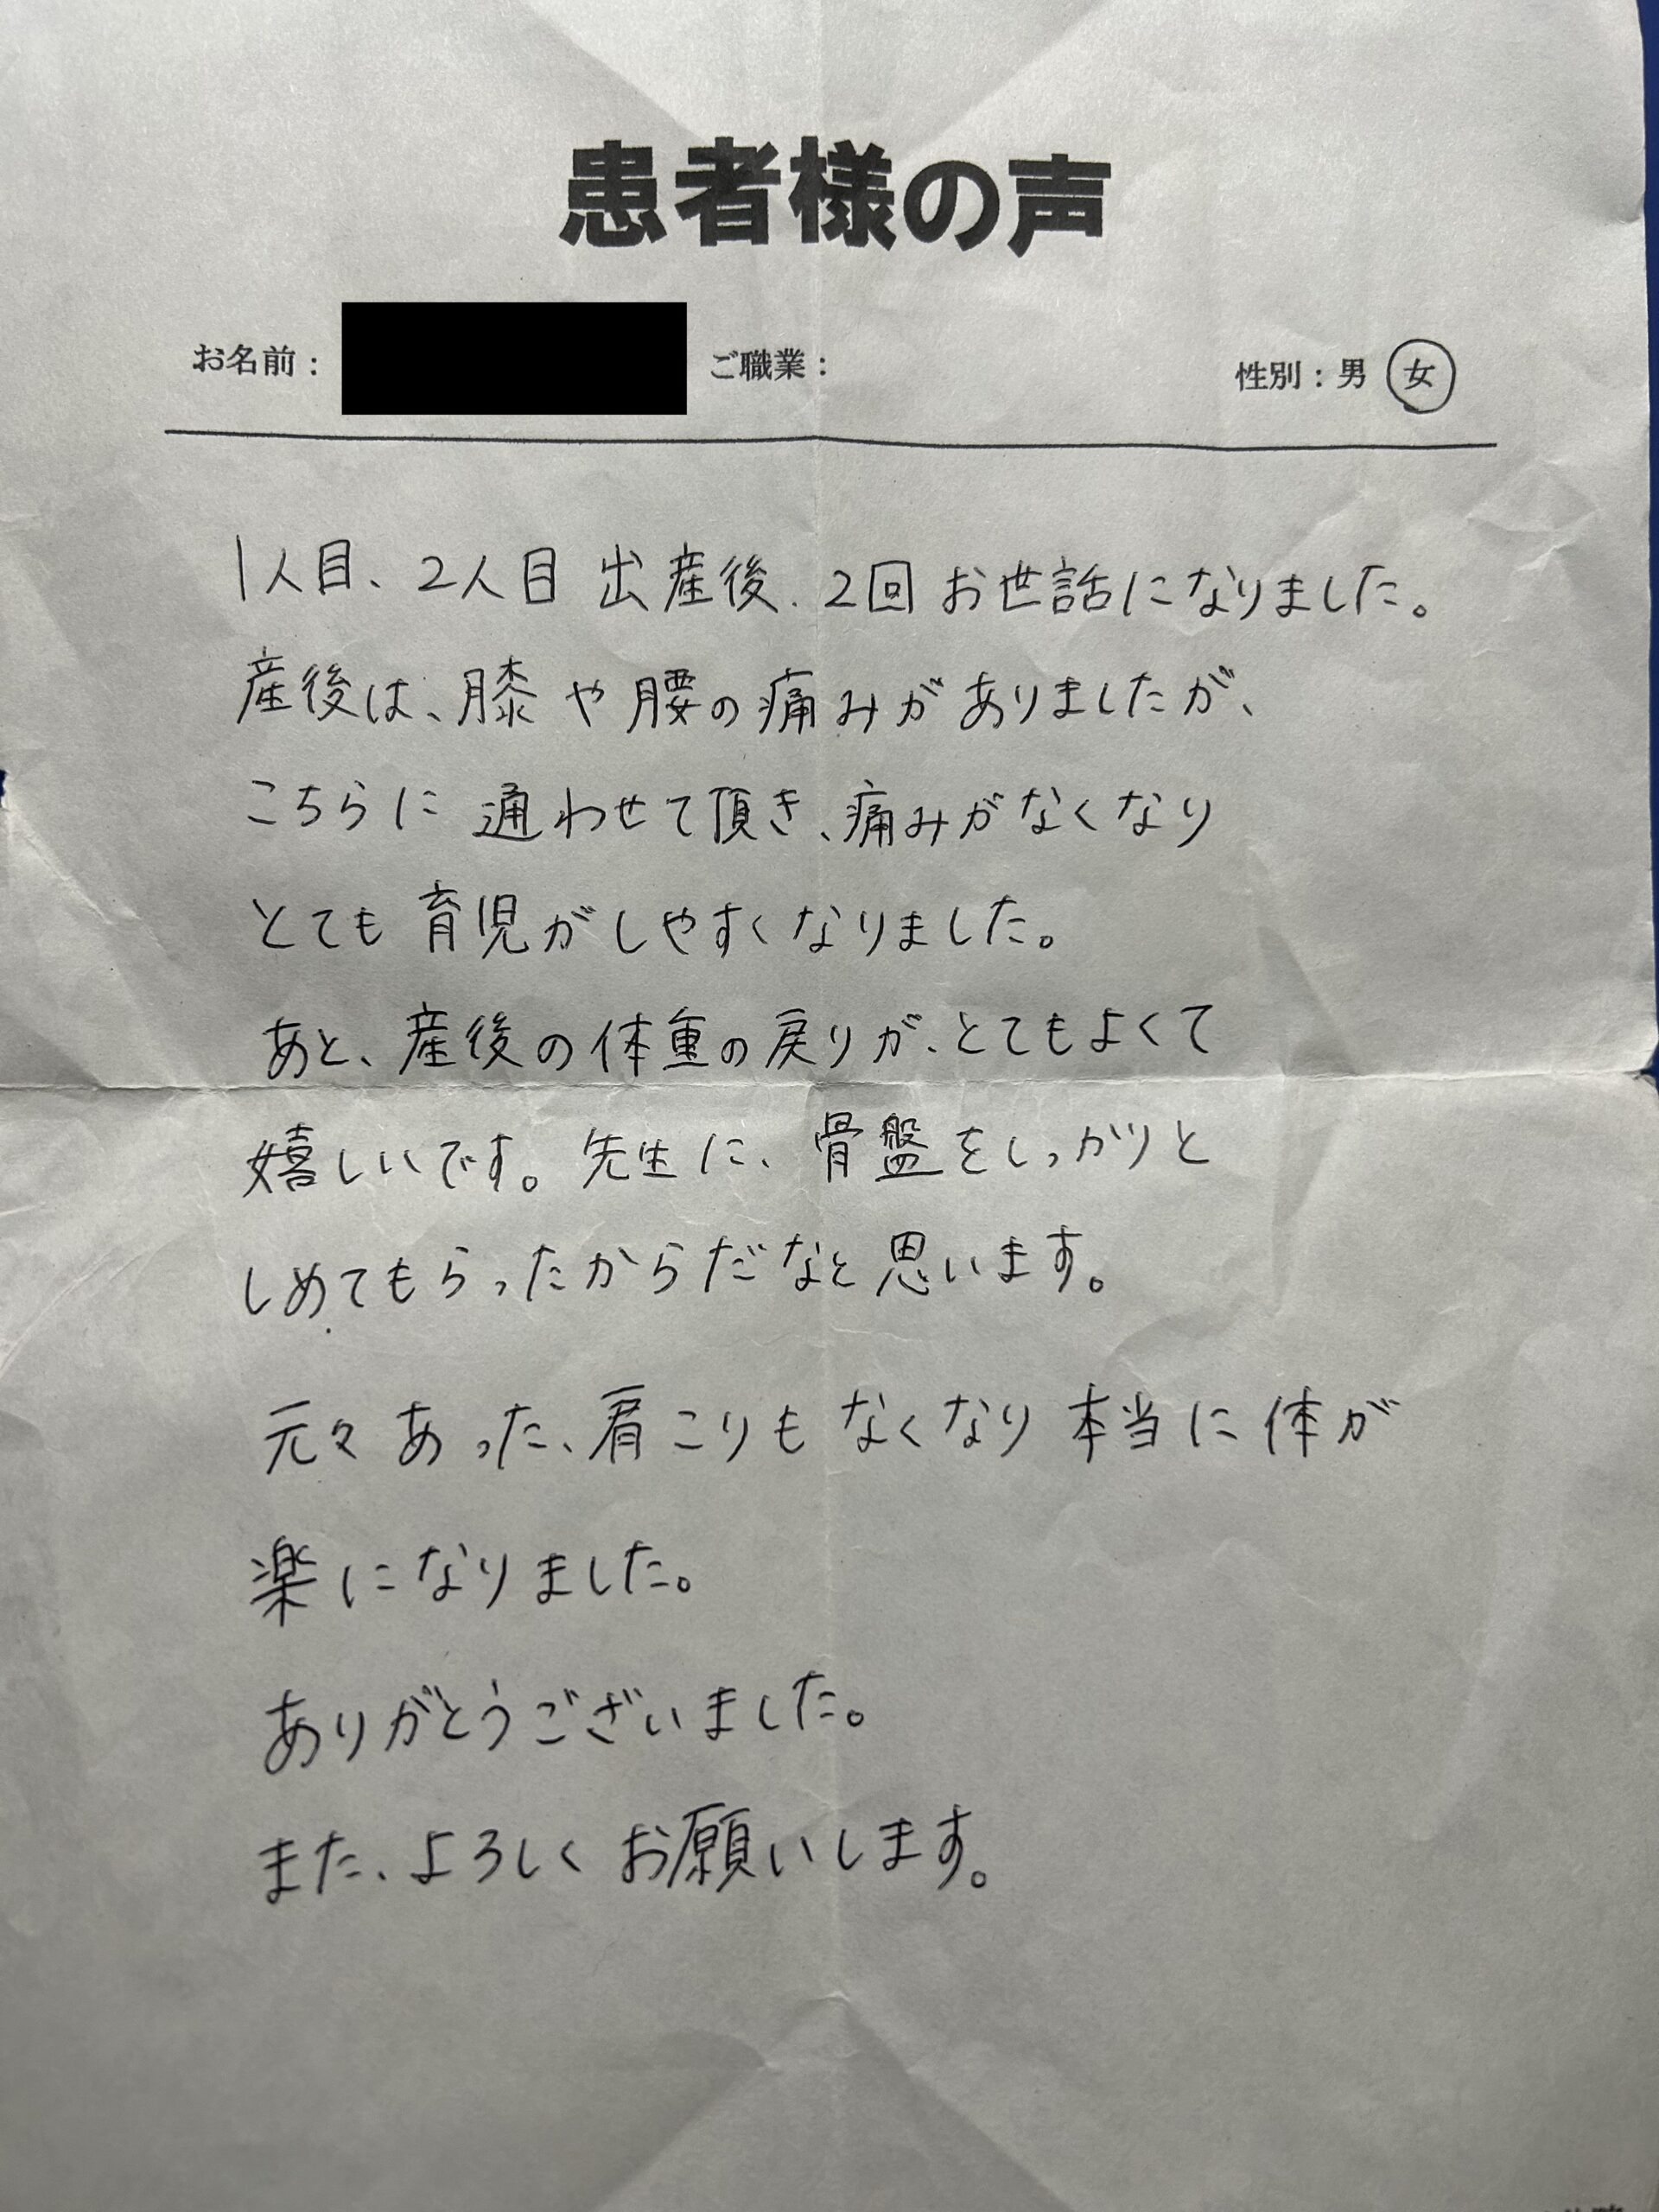 患者様の声
お名前： ご職業： 性別：男 女
1人目、2人目 出産後、2回 お世話になりました。
産後は、膝や腰の痛みがありましたが、
こちらに 通わせて頂き、痛みがなくなり
とても 育児がしやすくなりました。
あと、産後の体重の戻りが、とてもよくて
嬉しいです。先生に、骨盤をしっかりと
しめてもらったからだなと思います。
元々あった、肩こりもなくなり本当に体が
楽になりました。
ありがとうございました。
また、よろしくお願いします。